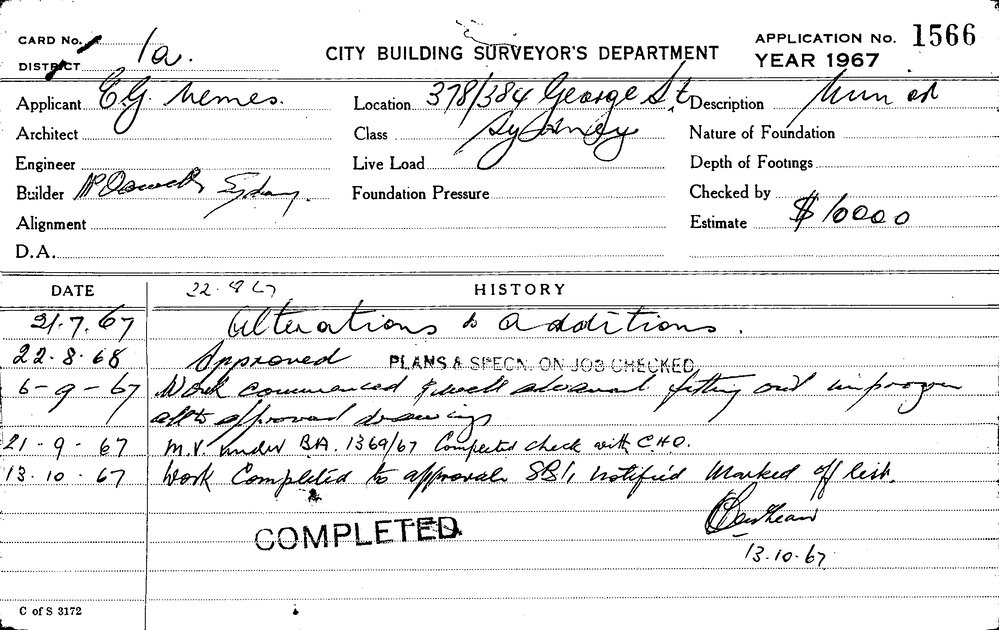 CARD No.
CITY BUILDING SURVEYOR'S DEPARTMENT
APPLICATION No. 1566
DISTRICT 1a.
YEAR 1967
Applicant E.G. Nemes.
Location 378/384 George St
Description
Architect
Class Sydney
Nature of Foundation
Engineer
Live Load
Depth of Footings
Builder Sydney.
Foundation Pressure
Checked by
Alignment
Estimate $ 6000
D.A.
DATE
22.8.67
HISTORY
21.7.67 Alterations & additions.
22.8.68 Approved PLANS & SPECN. ON JOB CHECKED
6-9-67 Work commenced & well advanced fitting out in progress
all to approved drawings
21-9-67 M.V. under B.A. 1369/67 Completed check with C.H.O.
13.10.67 Work Completed to approval SBI, notified Marked off list.
COMPLETED
13.10.67
C of S 3172